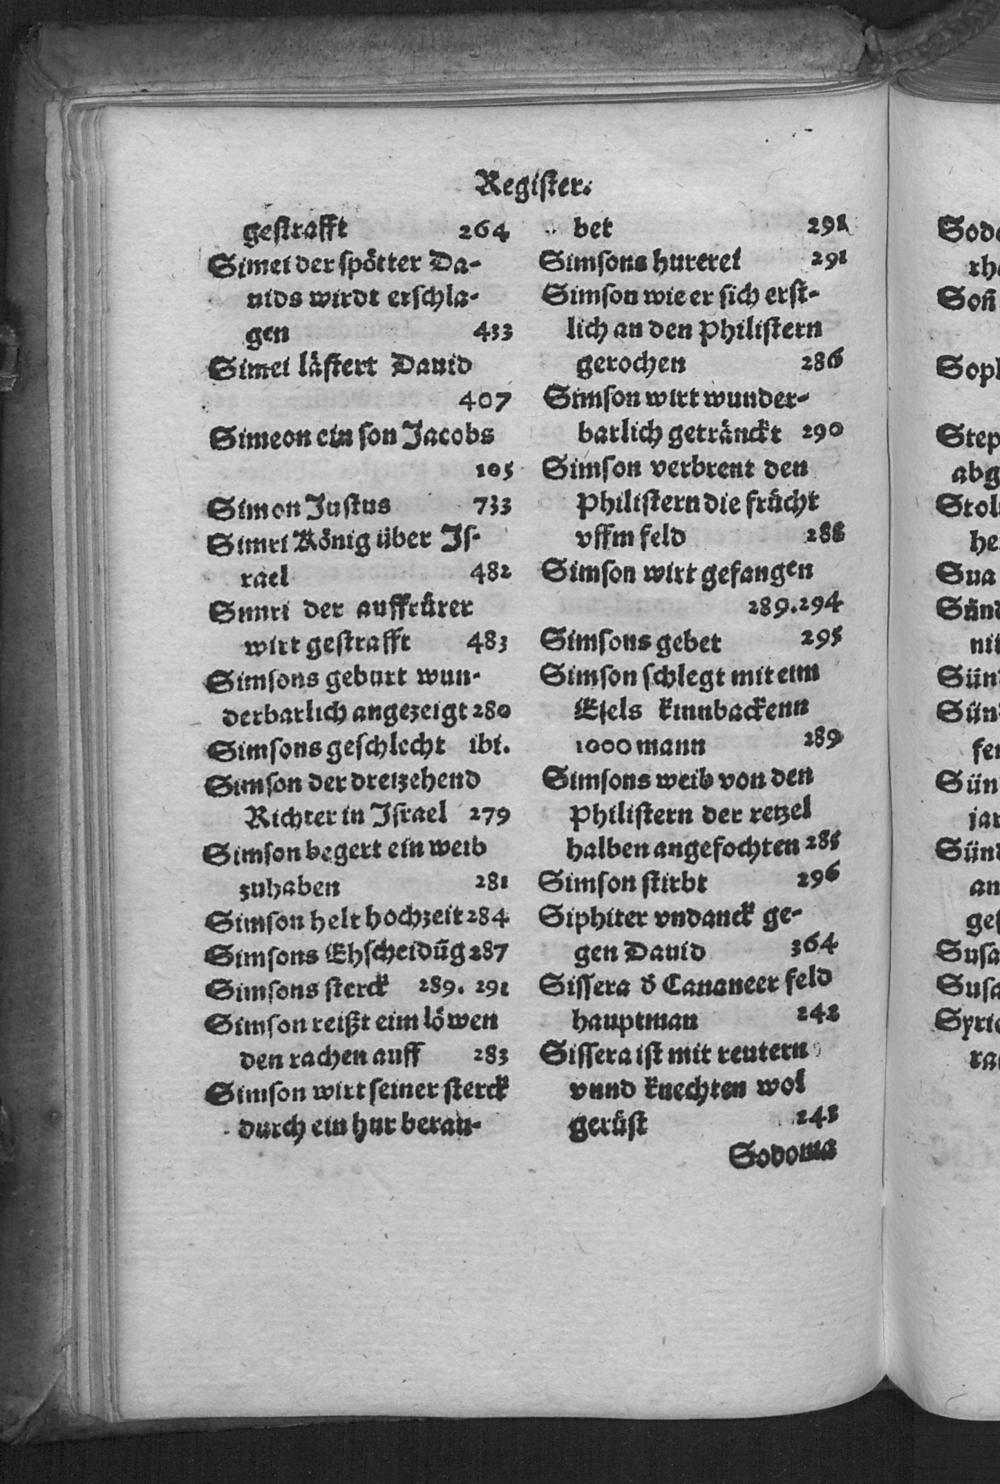 Register.
gestrafft 264
Simei der spötter Da-
uids wirdt erschla-
gen 433
Simei lästert Dauid
407
Simeon ein son Jacobs
105
Simon Justus 733
Simri König über Js-
rael 482
Simri der auffrürer
wirt gestrafft 483
Simsons geburt wun-
derbarlich angezeigt 280
Simsons geschlecht ibi.
Simson der dreizehend
Richter in Jsrael 279
Simson begert ein weib
zuhaben 281
Simson helt hochzeit 284
Simsons Ehscheidūg 287
Simsons sterck 289. 291
Simson reißt eim löwen
den rachen auff 283
Simson wirt seiner sterck
durch ein hur berau-
bet 291
Simsons hurerei 291
Simson wie er sich erst-
lich an den Philistern
gerochen 286
Simson wirt wunder-
barlich getränckt 290
Simson verbrent den
Philistern die frücht
vffm feld 288
Simson wirt gefangen
289.294
Simsons gebet 295
Simson schlegt mit eim
Esels kinnbackenn
1000 mann 289
Simsons weib von den
Philistern der retzel
halben angefochten 285
Simson stirbt 296
Siphiter vndanck ge-
gen Dauid 364
Sissera d̕ Cananeer feld
hauptman 242
Sissera ist mit reutern
vnnd knechten wol
gerüst 243
Sodoma